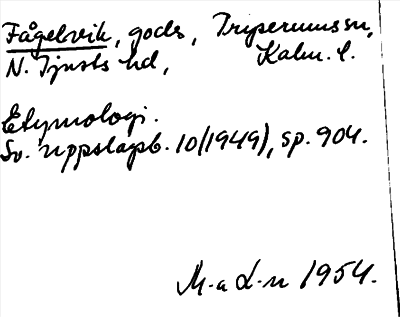 Fågelvik, gods, Tryserums sn,
N. Tjusts hd, Kalm. l.
Etymologi.
Sv. uppslagsb. 10(1949), sp. 904.
M-a L-n 1954.